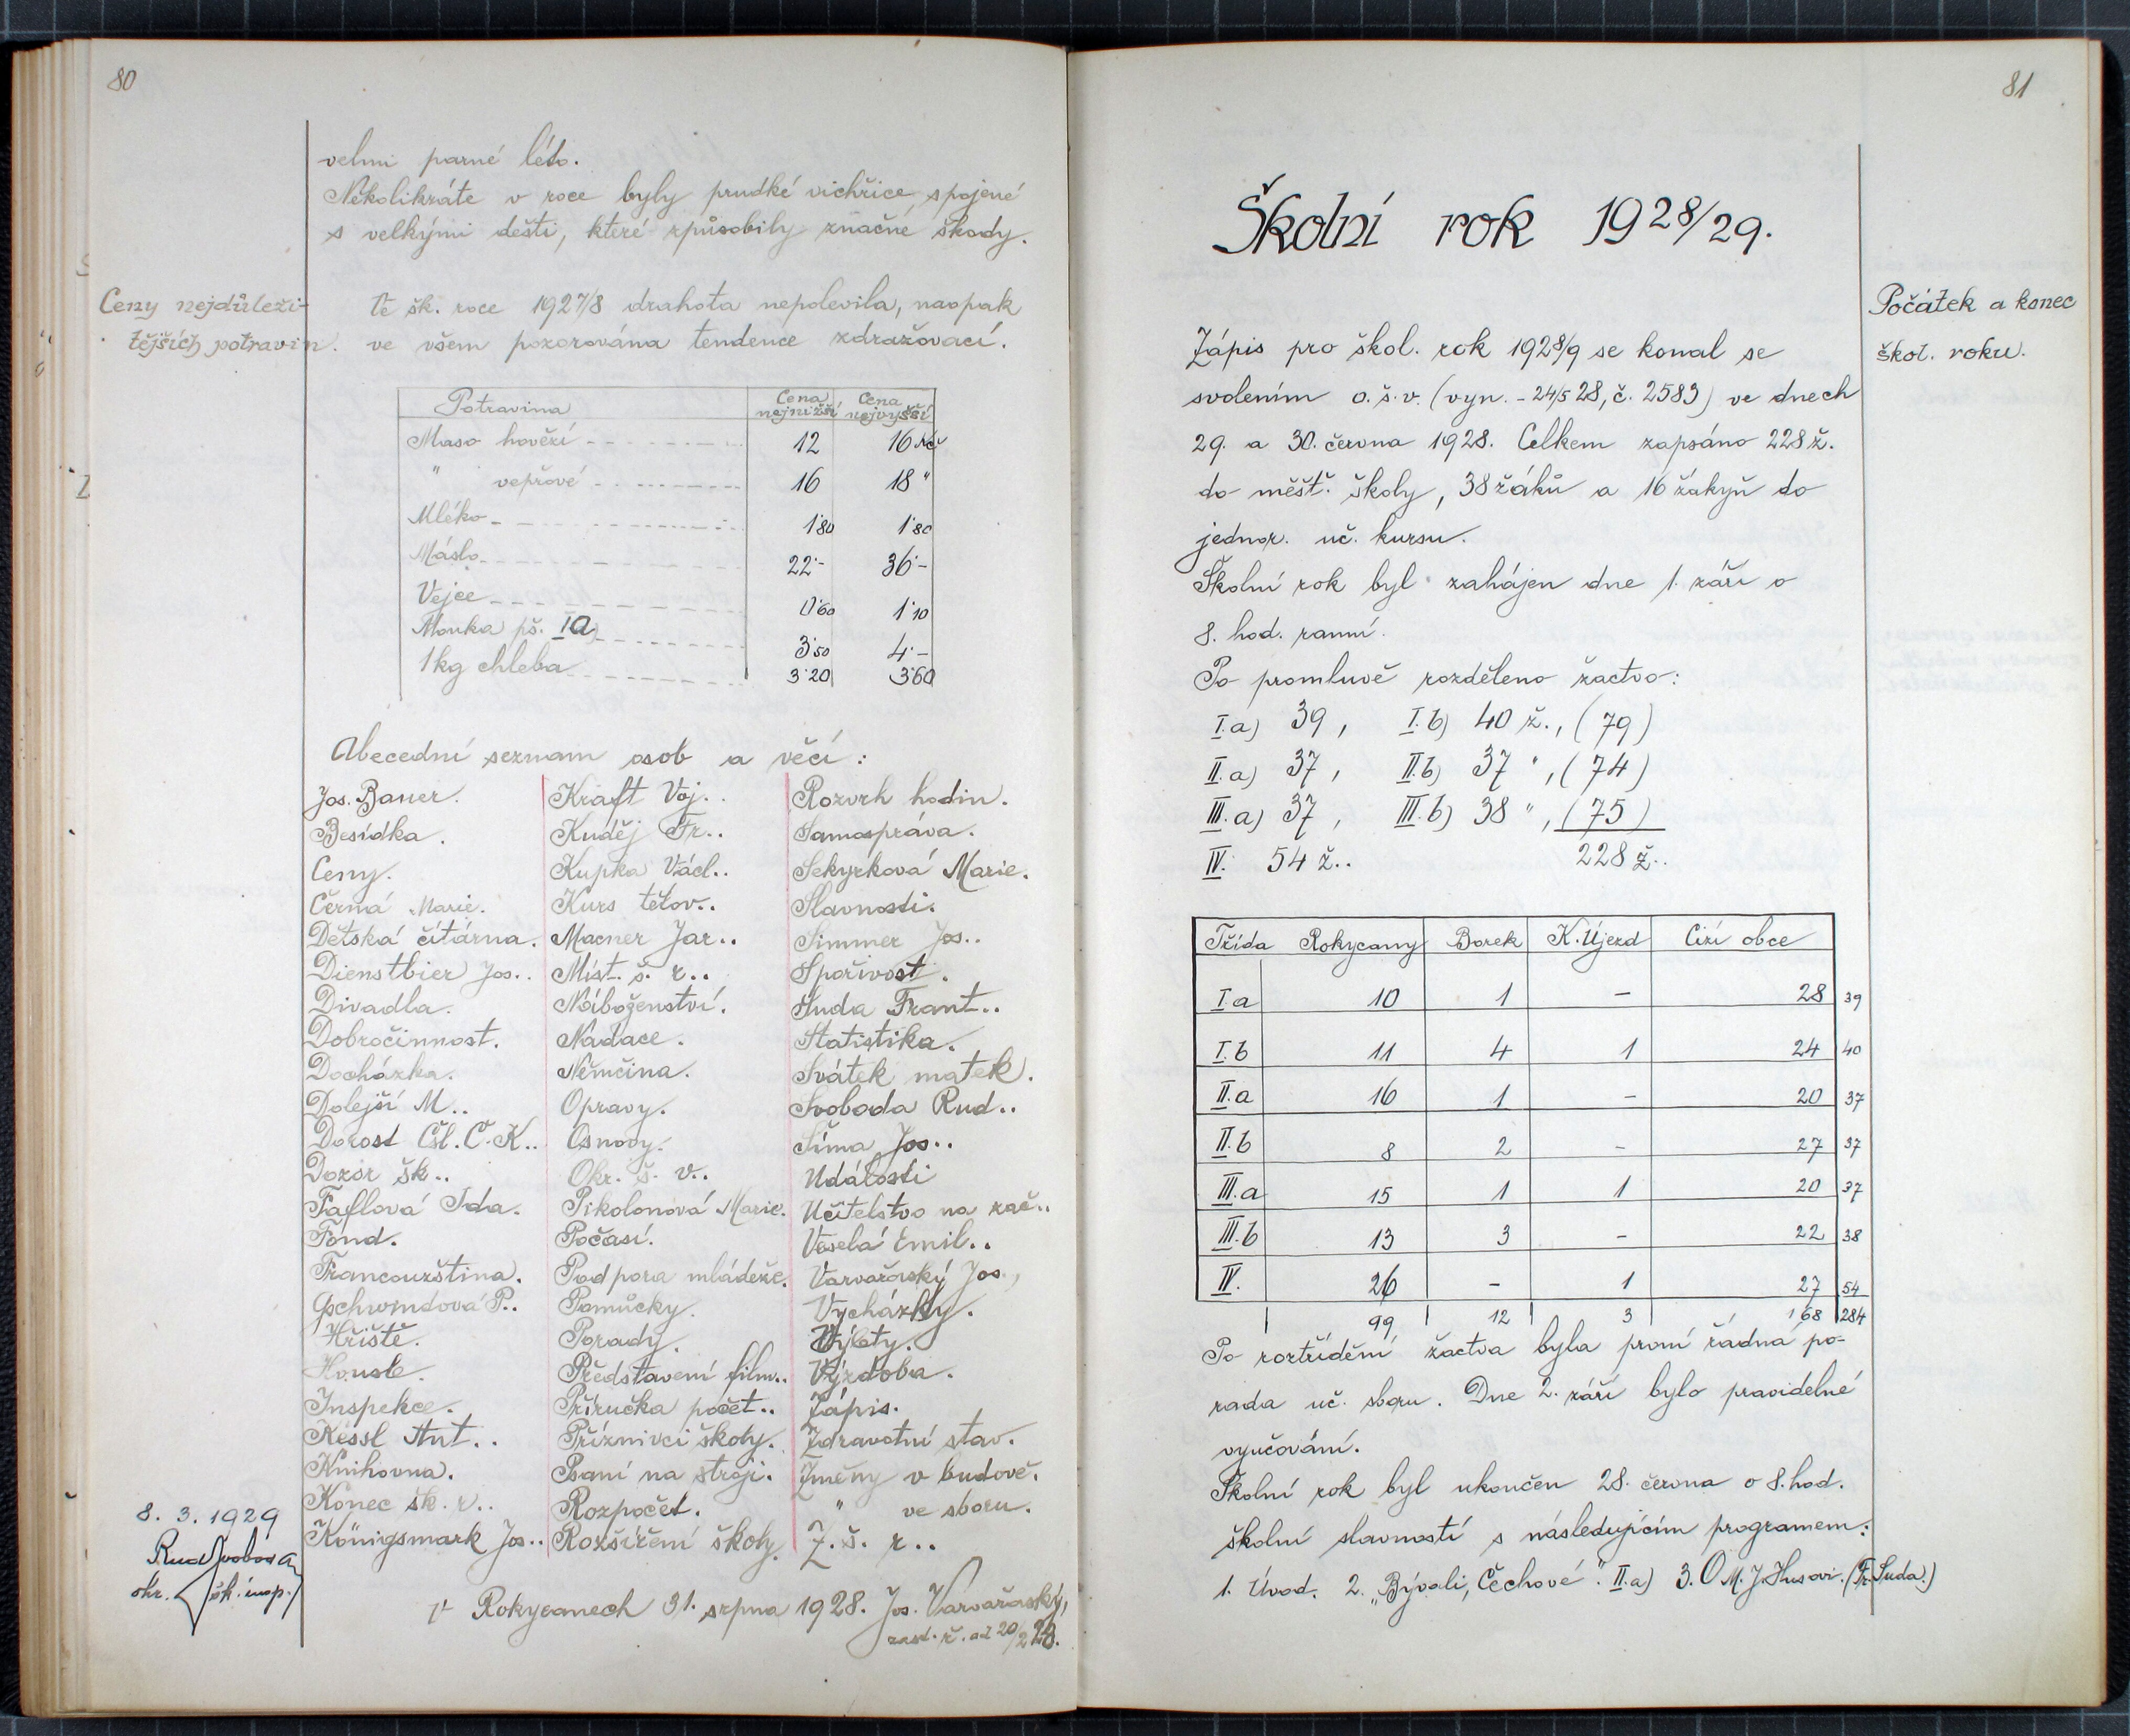 80
velmi parné léto.
Několikráte v roce byly prudké vichřice, spojené
s velkými dešti, které způsobily značné škody.
Ceny nejdůleži-
tějších potravin.
Ve šk. roce 1927/8 drahota nepolevila, naopak
ve všem pozorována tendence zdražovací.
Potravina Cena nejnižší Cena nejvyšší
Maso hovězí 12 16 Kč
" vepřové 16 18 "
Mléko 1·80 1·80
Máslo 22·- 36·-
Vejce 0·60 1·10
Mouka pš. Ia) 3·50 4·-
1 kg chleba 3·20 3·60
Abecední seznam osob a věcí:
Jos. Bauer. Kraft Voj.. Rozvrh hodin.
Besídka. Kuděj Fr.. Samospráva.
Ceny. Kupka Václ.. Sekyrková Marie.
Černá Marie. Kurs tělov.. Slavnosti.
Dětská čítárna. Macner Jar.. Simmer Jos..
Dienstbier Jos.. Míst. š. r.. Spořivost.
Divadla. Náboženství. Suda Frant..
Dobročinnost. Nadace. Statistika.
Docházka. Němčina. Svátek matek.
Dolejší M.. Opravy. Svoboda Rud..
Dorost Čsl. Č. K.. Osnovy. Šíma Jos..
Dozor šk.. Okr. š. v.. Události
Faflová Ida. Pikolonová Marie. Učitelstvo na zač..
Fond. Počasí. Veselá Emil..
Francouzština. Podpora mládeže. Varvařovský Jos.,
Gschwindová P.. Pomůcky. Vycházky.
Hřiště. Porady. Výlety.
Housle. Představení film.. Výzdoba.
Inspekce. Příručka počet.. Zápis.
Kessl Ant.. Příznivci školy. Zdravotní stav.
Knihovna. Psaní na stroji. Změny v budově.
Konec šk. r.. Rozpočet. " ve sboru.
Königsmark Jos.. Rozšíření školy. Z. š. r..
8. 3. 1929
Rud Svoboda
okr. šk. insp.
V Rokycanech 31. srpna 1928. Jos. Varvařovský,
zast. ř. od 20/2 28.
81
Školní rok 1928/29.
Počátek a konec
škol. roku.
Zápis pro škol. rok 1928/9 se konal se
svolením o. š. v. (vyn. - 24/5 28, č. 2583) ve dnech
29. a 30. června 1928. Celkem zapsáno 228 ž.
do měšť. školy, 38 žáků a 16 žákyň do
jednor. uč. kursu.
Školní rok byl zahájen dne 1. září o
8. hod. ranní.
Po promluvě rozděleno žactvo:
I. a) 39, I. b) 40 ž., (79)
II. a) 37, II. b) 37 ", (74)
III. a) 37, III. b) 38 ", (75)
IV. 54 ž.. 228 ž..
Třída Rokycany Borek K. Újezd Cizí obce
I a 10 1 - 28 39
I. b 11 4 1 24 40
II. a 16 1 - 20 37
II. b 8 2 - 27 37
III. a 15 1 1 20 37
III. b 13 3 - 22 38
IV. 26 - 1 27 54
99 12 3 168 284
Po roztřídění žactva byla první řádná po-
rada uč. sboru. Dne 2. září bylo pravidelné
vyučování.
Školní rok byl ukončen 28. června o 8. hod.
školní slavností s následujícím programem:
1. Úvod. 2. „Bývali Čechové". II. a) 3. O M. J. Husovi. (Fr. Suda.)